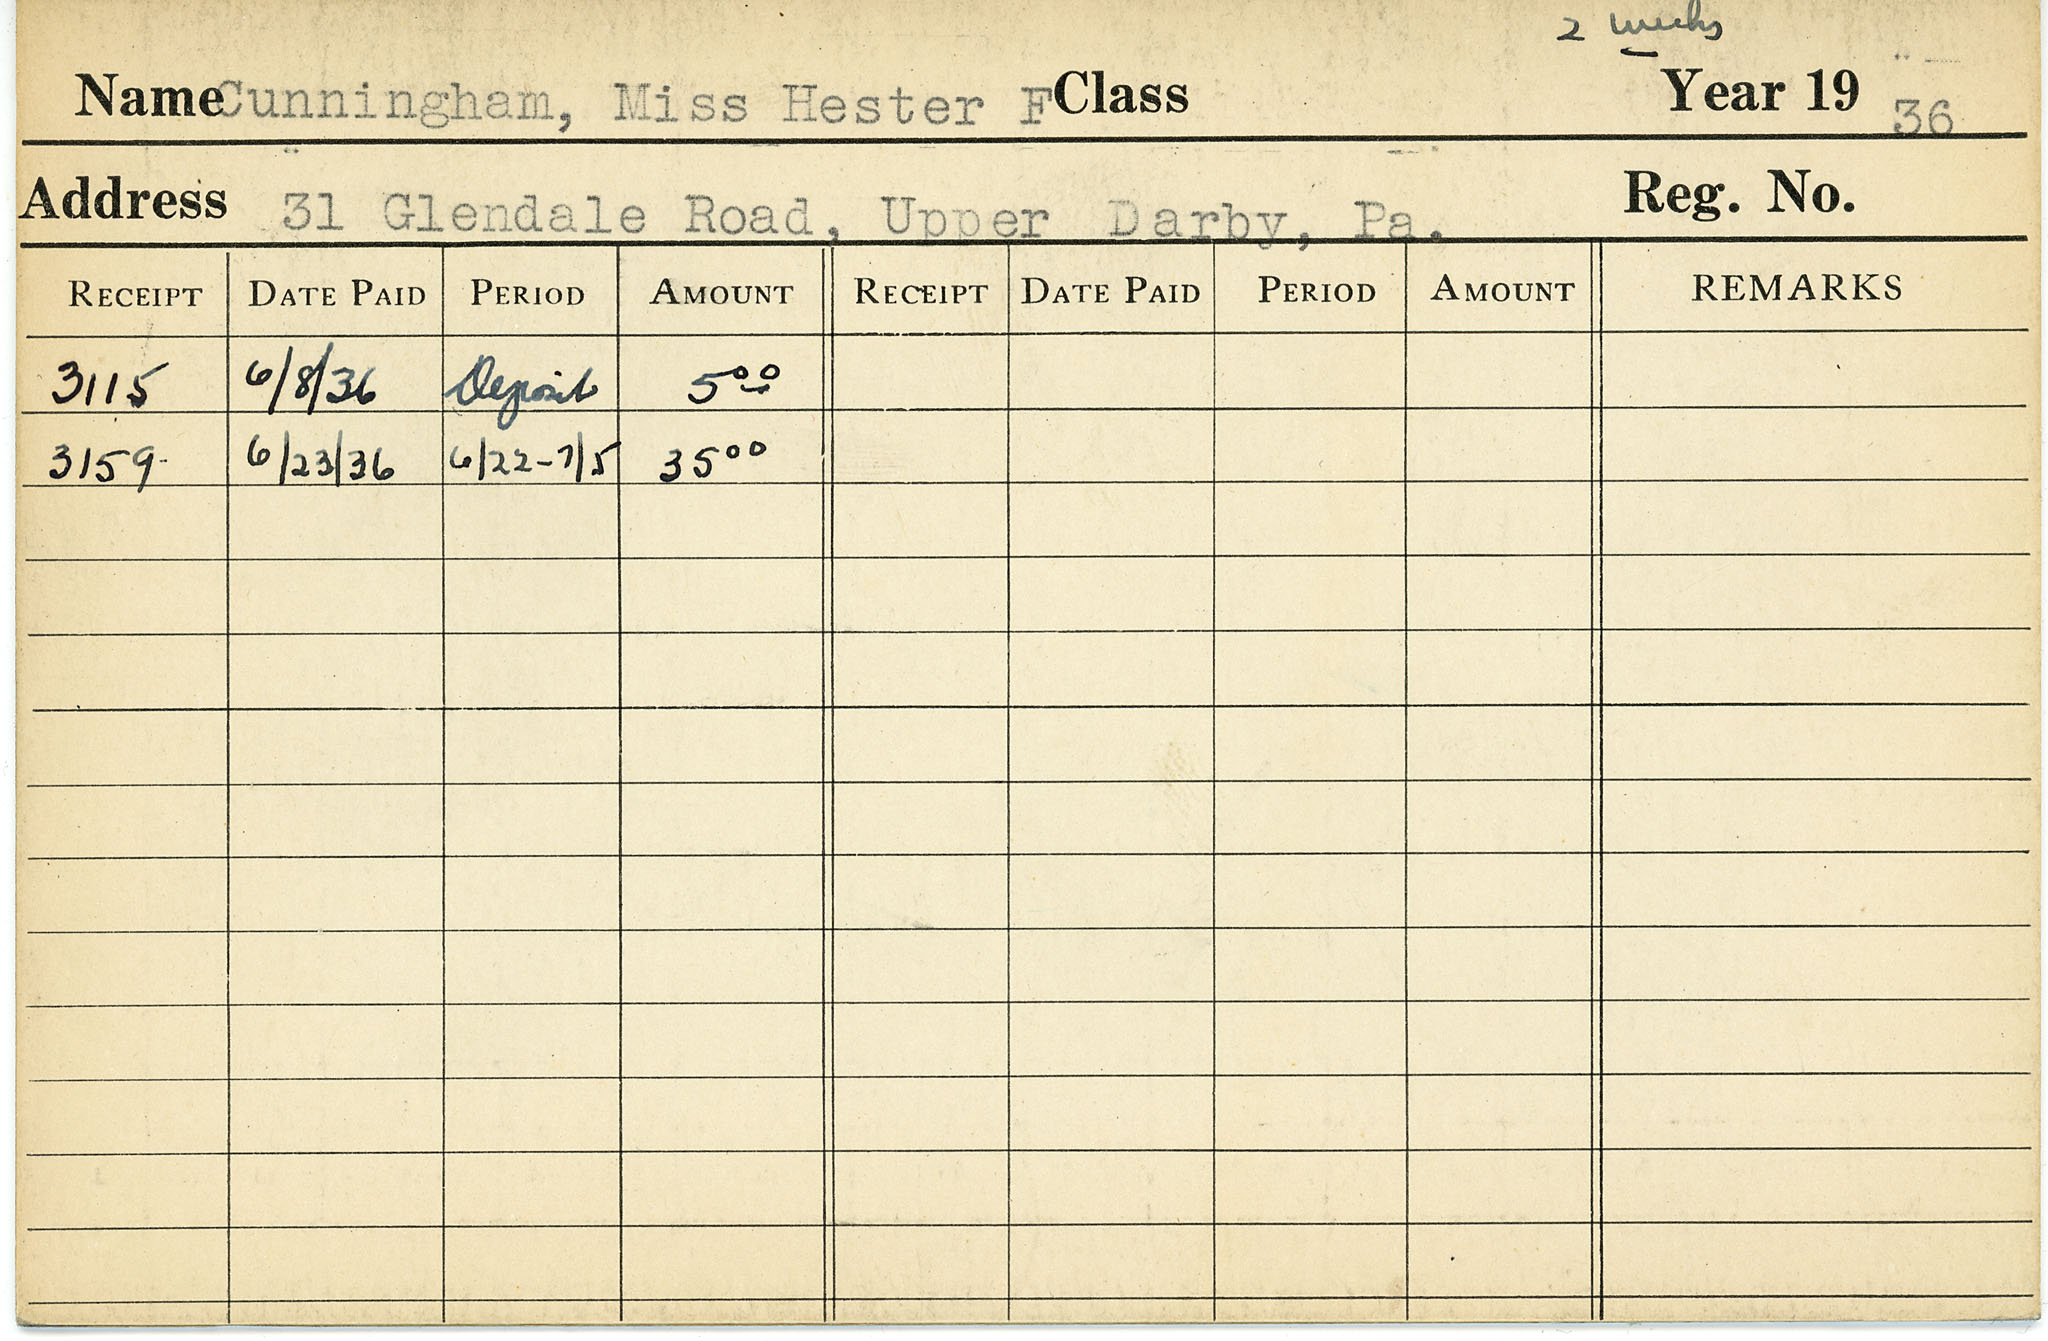 2 weeks
Name Cunningham, Miss Hester F Class Year 19 36
Address 31 Glendale Road, Upper Darby, Pa. Reg. No.
RECEIPT DATE PAID PERIOD AMOUNT RECEIPT DATE PAID PERIOD AMOUNT REMARKS
3115 6/8/36 Deposit 5 00
3159 6/23/36 6/22-7/5 35 00